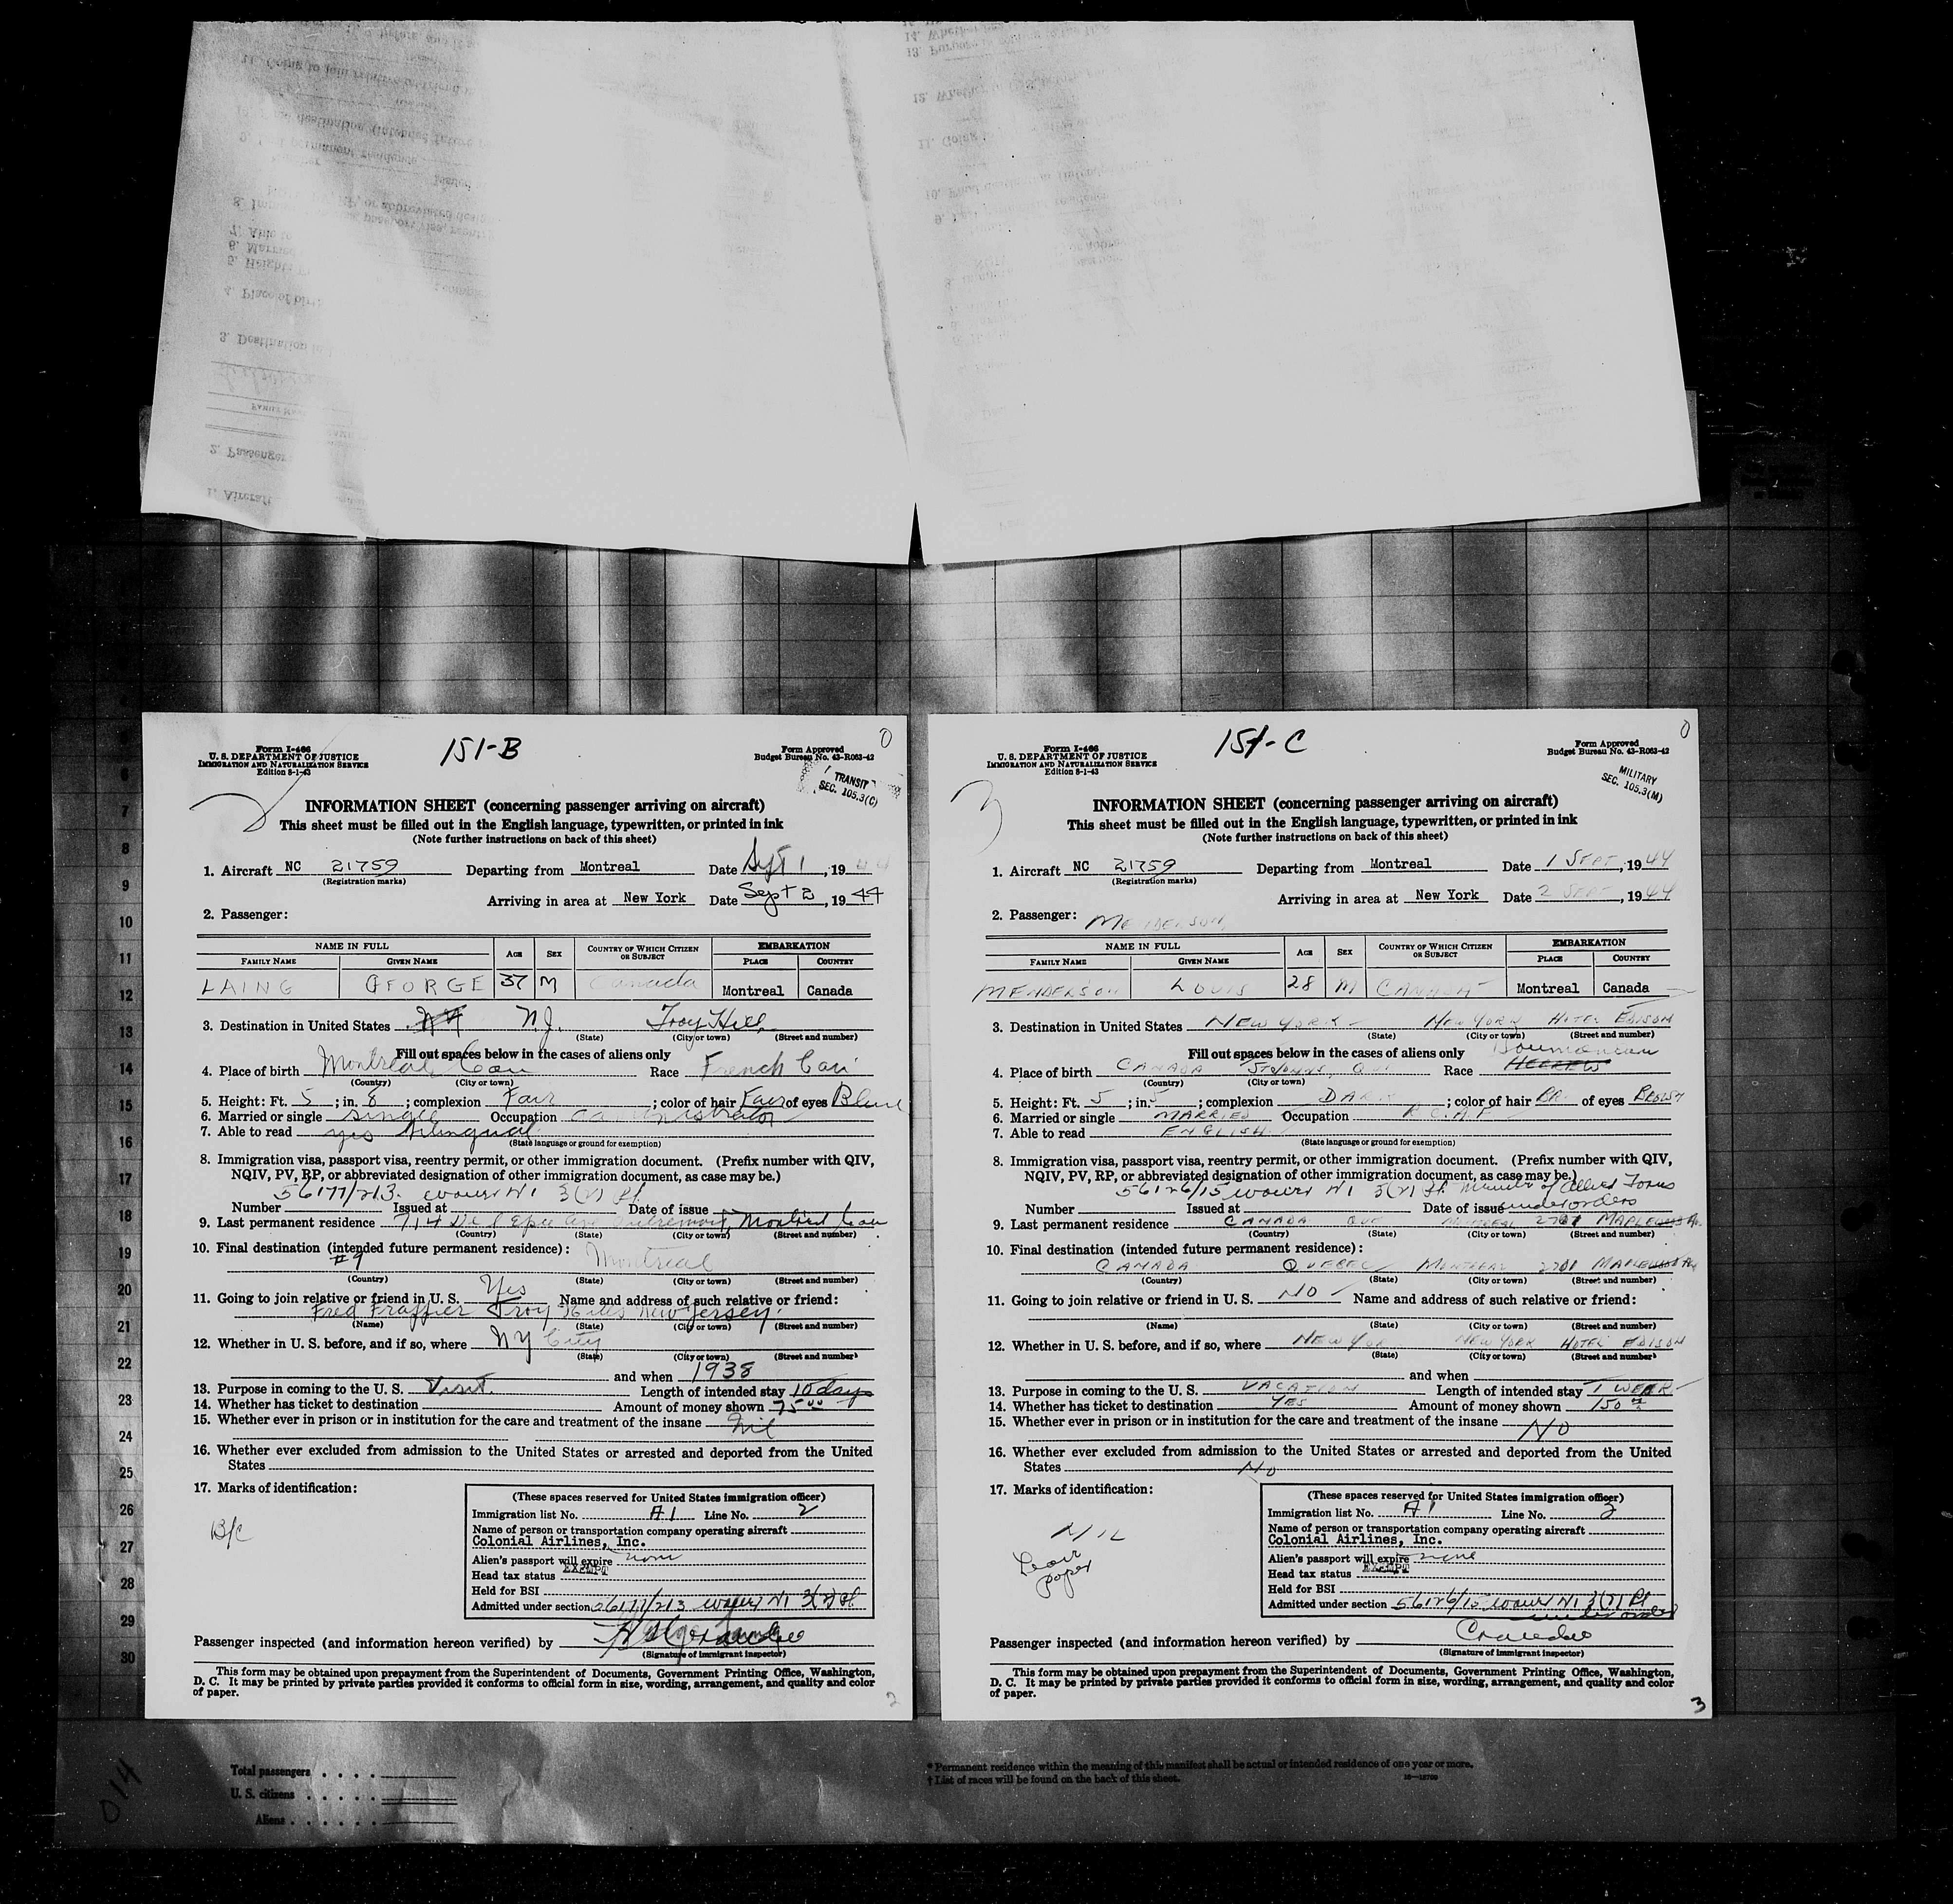 151-B
Form I-466
U. S. DEPARTMENT OF JUSTICE
IMMIGRATION AND NATURALIZATION SERVICE
Edition 8-1-43
Form Approved
Budget Bureau No. 43-R063-42
TRANSIT
SEC. 105.3(C)
INFORMATION SHEET (concerning passenger arriving on aircraft)
This sheet must be filled out in the English language, typewritten, or printed in ink
(Note further instructions on back of this sheet)
1. Aircraft NC 21759 Departing from Montreal Date Sept 1, 19 44
(Registration marks)
Arriving in area at New York Date Sept 2, 19 44
2. Passenger:
NAME IN FULL AGE SEX COUNTRY OF WHICH CITIZEN OR SUBJECT EMBARKATION
FAMILY NAME GIVEN NAME PLACE COUNTRY
LAING GEORGE 37 M Canada Montreal Canada
3. Destination in United States N.J. Troy Hill
(State) (City or town) (Street and number)
Fill out spaces below in the cases of aliens only
4. Place of birth Montreal Can Race French Can
(Country) (City or town)
5. Height: Ft. 5; in. 8; complexion Fair; color of hair Fair of eyes Blue
6. Married or single single Occupation
7. Able to read yes bilingual
(State language or ground for exemption)
8. Immigration visa, passport visa, reentry permit, or other immigration document. (Prefix number with QIV,
NQIV, PV, RP, or abbreviated designation of other immigration document, as case may be.)
56177/213
Number Issued at Date of issue
9. Last permanent residence 714 De l Epee Ave Outremont, Montreal Can
(Country) (State) (City or town) (Street and number)
10. Final destination (intended future permanent residence): Montreal
#9
(Country) (State) (City or town) (Street and number)
11. Going to join relative or friend in U. S. Yes Name and address of such relative or friend:
Fred Frappier Troy Hills New Jersey.
(Name) (State) (City or town) (Street and number)
12. Whether in U. S. before, and if so, where NY City
(State) (City or town) (Street and number)
and when 1938
13. Purpose in coming to the U. S. Visit. Length of intended stay 10 days
14. Whether has ticket to destination Amount of money shown 75.00
15. Whether ever in prison or in institution for the care and treatment of the insane Nil
16. Whether ever excluded from admission to the United States or arrested and deported from the United
States
17. Marks of identification:
B/c
(These spaces reserved for United States immigration officer)
Immigration list No. A1 Line No. 2
Name of person or transportation company operating aircraft
Colonial Airlines, Inc.
Alien's passport will expire none
Head tax status EXEMPT
Held for BSI
Admitted under section 56177/213
Passenger inspected (and information hereon verified) by
(Signature of immigrant inspector)
This form may be obtained upon prepayment from the Superintendent of Documents, Government Printing Office, Washington,
D. C. It may be printed by private parties provided it conforms to official form in size, wording, arrangement, and quality and color
of paper.
2
151-C
Form I-466
U. S. DEPARTMENT OF JUSTICE
IMMIGRATION AND NATURALIZATION SERVICE
Edition 8-1-43
Form Approved
Budget Bureau No. 43-R063-42
MILITARY
SEC. 105.3(M)
3
INFORMATION SHEET (concerning passenger arriving on aircraft)
This sheet must be filled out in the English language, typewritten, or printed in ink
(Note further instructions on back of this sheet)
1. Aircraft NC 21759 Departing from Montreal Date 1 SEPT, 19 44
(Registration marks)
Arriving in area at New York Date 2 SEPT, 19 44
2. Passenger: MENDERSON
NAME IN FULL AGE SEX COUNTRY OF WHICH CITIZEN OR SUBJECT EMBARKATION
FAMILY NAME GIVEN NAME PLACE COUNTRY
MENDERSON LOUIS 28 M CANADA Montreal Canada
3. Destination in United States NEW YORK NEW YORK HOTEL EDISON
(State) (City or town) (Street and number)
Fill out spaces below in the cases of aliens only Roumanian
4. Place of birth CANADA ST JOHNS, QUE Race HEBREW
(Country) (City or town)
5. Height: Ft. 5; in. 5; complexion DARK; color of hair BR. of eyes BROWN
6. Married or single MARRIED Occupation R.C.A.F
7. Able to read ENGLISH
(State language or ground for exemption)
8. Immigration visa, passport visa, reentry permit, or other immigration document. (Prefix number with QIV,
NQIV, PV, RP, or abbreviated designation of other immigration document, as case may be.)
56126/15 Member of Allied Forces
Number Issued at Date of issue under orders
9. Last permanent residence CANADA QUE MONTREAL 2701 MAPLEWOOD AV.
(Country) (State) (City or town) (Street and number)
10. Final destination (intended future permanent residence):
CANADA QUEBEC MONTREAL 2701 MAPLEWOOD AV
(Country) (State) (City or town) (Street and number)
11. Going to join relative or friend in U. S. NO Name and address of such relative or friend:
(Name) (State) (City or town) (Street and number)
12. Whether in U. S. before, and if so, where NEW YORK NEW YORK HOTEL EDISON
(State) (City or town) (Street and number)
and when
13. Purpose in coming to the U. S. VACATION Length of intended stay 1 WEEK
14. Whether has ticket to destination YES Amount of money shown 150
15. Whether ever in prison or in institution for the care and treatment of the insane NO
16. Whether ever excluded from admission to the United States or arrested and deported from the United
States NO
17. Marks of identification:
NIL
Leave
paper
(These spaces reserved for United States immigration officer)
Immigration list No. A1 Line No. 3
Name of person or transportation company operating aircraft
Colonial Airlines, Inc.
Alien's passport will expire none
Head tax status EXEMPT
Held for BSI
Admitted under section 56126/15
under orders
Passenger inspected (and information hereon verified) by
(Signature of immigrant inspector)
This form may be obtained upon prepayment from the Superintendent of Documents, Government Printing Office, Washington,
D. C. It may be printed by private parties provided it conforms to official form in size, wording, arrangement, and quality and color
of paper.
3
Total passengers
U. S. citizens
Aliens
* Permanent residence within the meaning of this manifest shall be actual or intended residence of one year or more.
† List of races will be found on the back of this sheet.
014